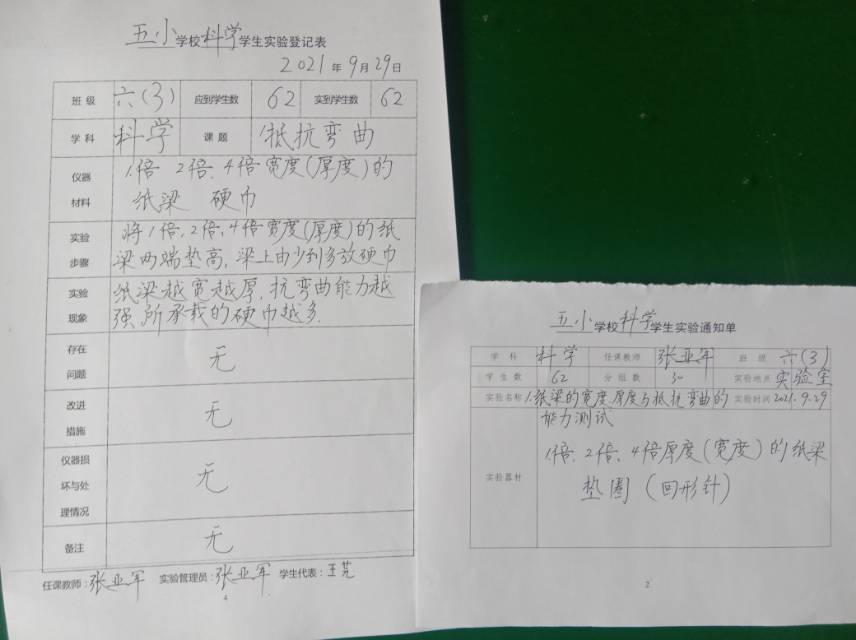 五小学校科学学生实验登记表
2021年9月29日
班级 六(3) 应到学生数 62 实到学生数 62
学科 科学 课题 抵抗弯曲
仪器材料 1倍 2倍、4倍宽度(厚度)的
纸梁 硬币
实验步骤 将1倍,2倍,4倍宽度(厚度)的纸
梁两端垫高,梁上由少到多放硬币
实验现象 纸梁越宽越厚,抗弯曲能力越
强所承载的硬币越多.
存在问题 无
改进措施 无
仪器损坏与处理情况 无
备注 无
任课教师:张亚军 实验管理员:张亚军 学生代表:王艺
4
五小学校科学学生实验通知单
学科 科学 任课教师 张亚军 班级 六(3)
学生数 62 分组数 30 实验地点 实验室
实验名称 1.纸梁的宽度厚度与抵抗弯曲的 实验时间 2021.9.29
能力测试
实验器材 1倍、2倍、4倍厚度(宽度)的纸梁
垫圈(回形针)
2